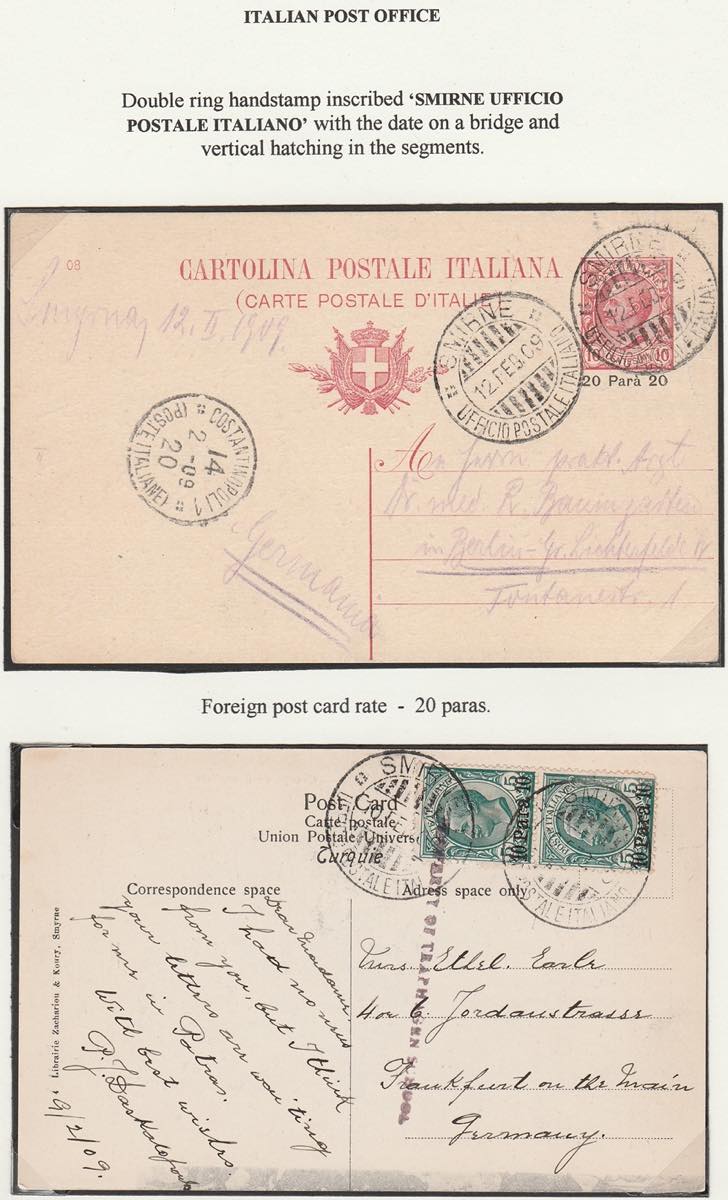 ITALIAN POST OFFICE
Double ring handstamp inscribed ‘SMIRNE UFFICIO
POSTALE ITALIANO’ with the date on a bridge and
vertical hatching in the segments.
08
CARTOLINA POSTALE ITALIANA
(CARTE POSTALE D'ITALIE
Smyrna, 12. II. 1909.
SMIRNE
12 FEB. 09
UFFICIO POSTALE ITALIANO
SMIRNE
12 FEB. 09
UFFICIO POSTALE ITALIANO
10 10
20 Parà 20
COSTANTINOPOLI 1
14
2 - 09
20
(POSTE ITALIANE)
An Herrn prakt. Arzt
Dr. med. R. Baumgarten
in Berlin-Gr. Lichterfelde W
Fontanestr. 1
Germania
Foreign post card rate - 20 paras.
Post Card
Carte postale
Union Postale Univers
Turquie
Correspondence space
Adress space only
SMIR
POSTALE ITAL
5 5
10 Para 10
10 Para 10
SMIRN
POSTALE ITALIANO
PROPERTY OF TRAPHAGEN SCHOOL
4 Librairie Zachariou & Koury, Smyrne
Dear Madame,
I had no news
from you, but I think
your letters are waiting
for me in Patras.
With best wishes.
P. J.
9/2/09.
Mrs. Ethel. Earle
40 Jordanstrasse
Frankfurt on the Main
Germany.